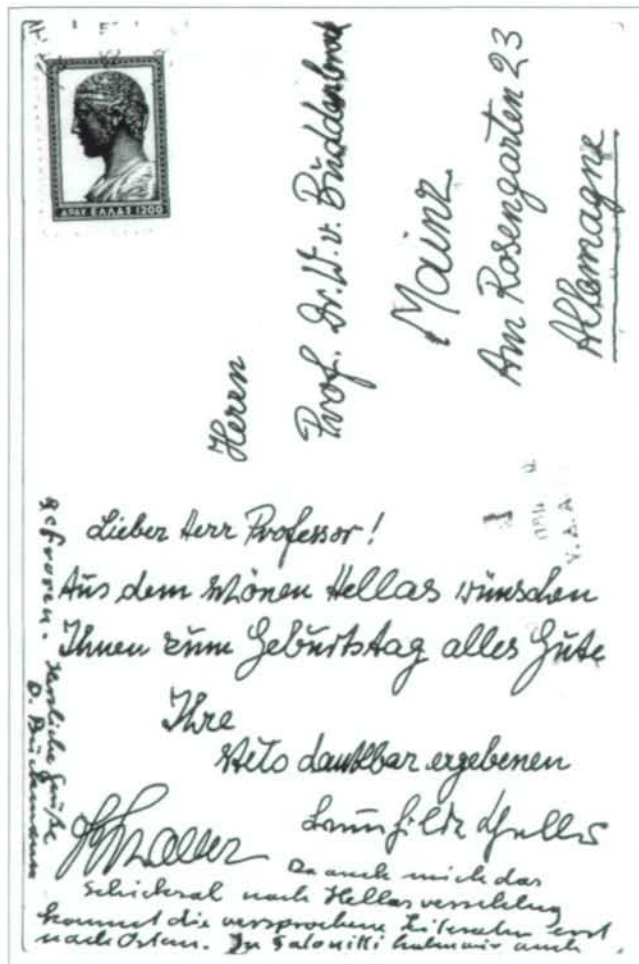 ΔΡΑΧ ΕΛΛΑΣ 1200
Herrn
Prof. Dr. W. v. Buddenbrock
Mainz
Am Rosengarten 23
Allemagne
Lieber Herr Professor!
Aus dem schönen Hellas wünschen
Ihnen zum Geburtstag alles Gute
Ihre
stets dankbar ergebenen
Da auch mich das
Schicksal nach Hellas verschlug
kommt die versprochene Literatur erst
nach Ostern. In Saloniki haben wir auch
gefroren. Herzliche Grüße